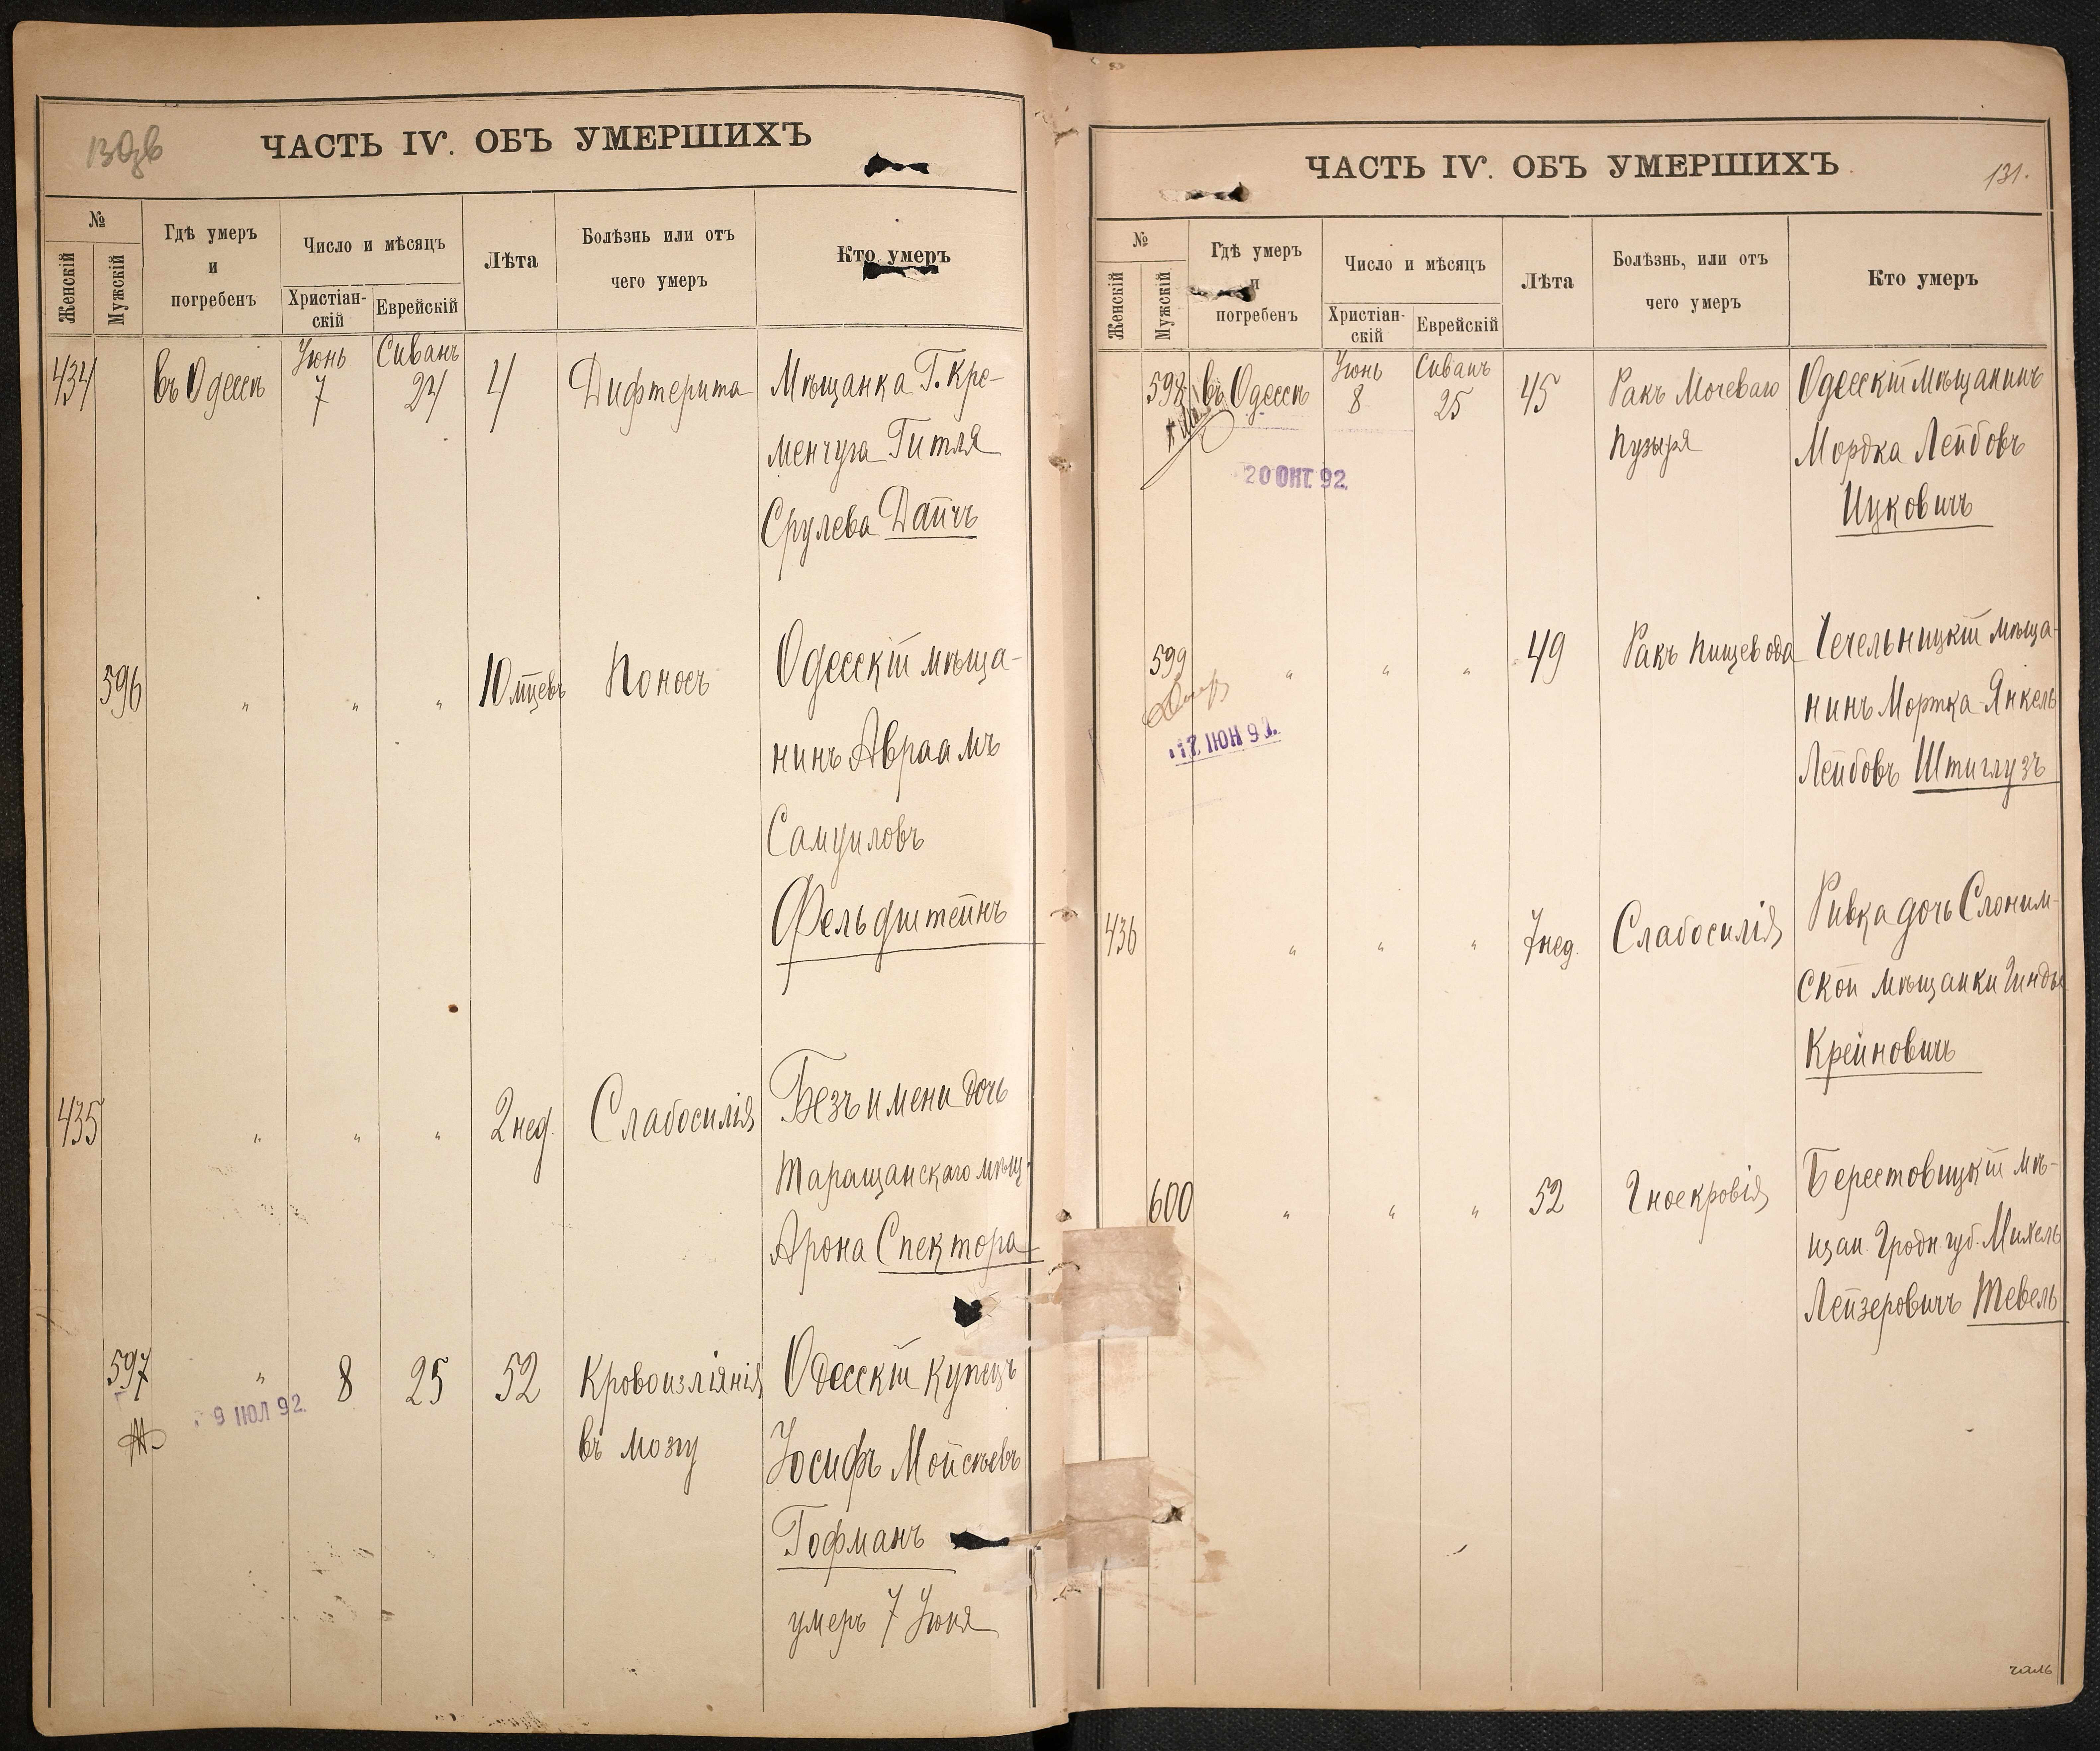 130 об
ЧАСТЬ IV. ОБЪ УМЕРШИХЪ
№
Женскій
Мужскій
Гдѣ умеръ
и
погребенъ
Число и мѣсяцъ
Христіан-
скій
Еврейскій
Лѣта
Болѣзнь или отъ
чего умеръ
Кто умеръ
434 въ Одессѣ Іюнь 7 Сиванъ 24 4 Дифтерита Мѣщанка Г. Кре-
менчуга Гитля
Срулева Дайчъ
596 " " " 10 мѣцевъ Поносъ Одесскій мѣща-
нинъ Авраамъ
Самуиловъ
Фельдштейнъ
435 " " " 2 нед. Слабосилія Безъ имени дочь
Таращанскаго мѣщ.
Арона Спектора
597 " 8 25 52 Кровоизліянія Одесскій купецъ
9 ІЮЛ 92.
въ мозгу Іосифъ Мойсѣевъ
Гофманъ
умеръ 7 Іюня
ЧАСТЬ IV. ОБЪ УМЕРШИХЪ
131.
№
Женскій
Мужскій
Гдѣ умеръ
и
погребенъ
Число и мѣсяцъ
Христіан-
скій
Еврейскій
Лѣта
Болѣзнь, или отъ
чего умеръ
Кто умеръ
598 въ Одессѣ Іюнь 8 Сиванъ 25 45 Ракъ Мочеваго Одесскій мѣщанинъ
пузыря Мордка Лейбовъ
20 ОКТ. 92.
Ицковичъ
599 " " " 49 Ракъ пищевода Чечельницкій мѣща-
нинъ Мортка-Янкель
17 ІЮН 92.
Лейбовъ Штиглузъ
436 " " " 7 нед. Слабосилія Ривка дочь Слоним-
ской мѣщанки Гинды
Крейновичъ
600 " " " 52 Гноекровія Берестовицкій мѣ-
щан. Гродн. губ. Михель
Лейзеровичъ Тевель